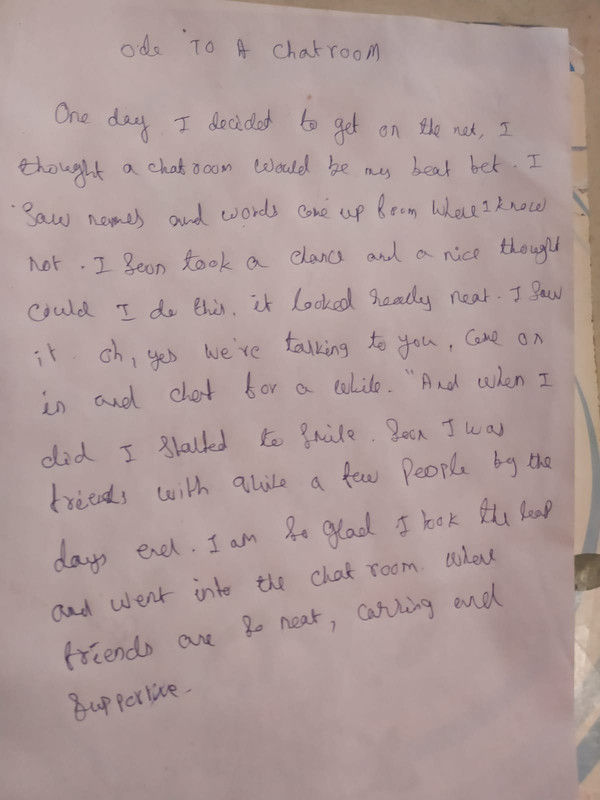 Ode TO A ChatrooM
One day I decided to get on the net, I
thought a chatroom would be my beat bet. I
Saw names and words come up from where I know
not. I Soon took a chance and a nice thought
could I do this. it looked really neat. I Saw
it. oh, yes we're talking to you, Come on
in and chat for a while. "And when I
did I Statted to Smile. Soon I was
friends with quite a few People by the
days end. I am So glad I took the leap
and went into the chat room. Where
friends are So neat, carring and
Supportive.